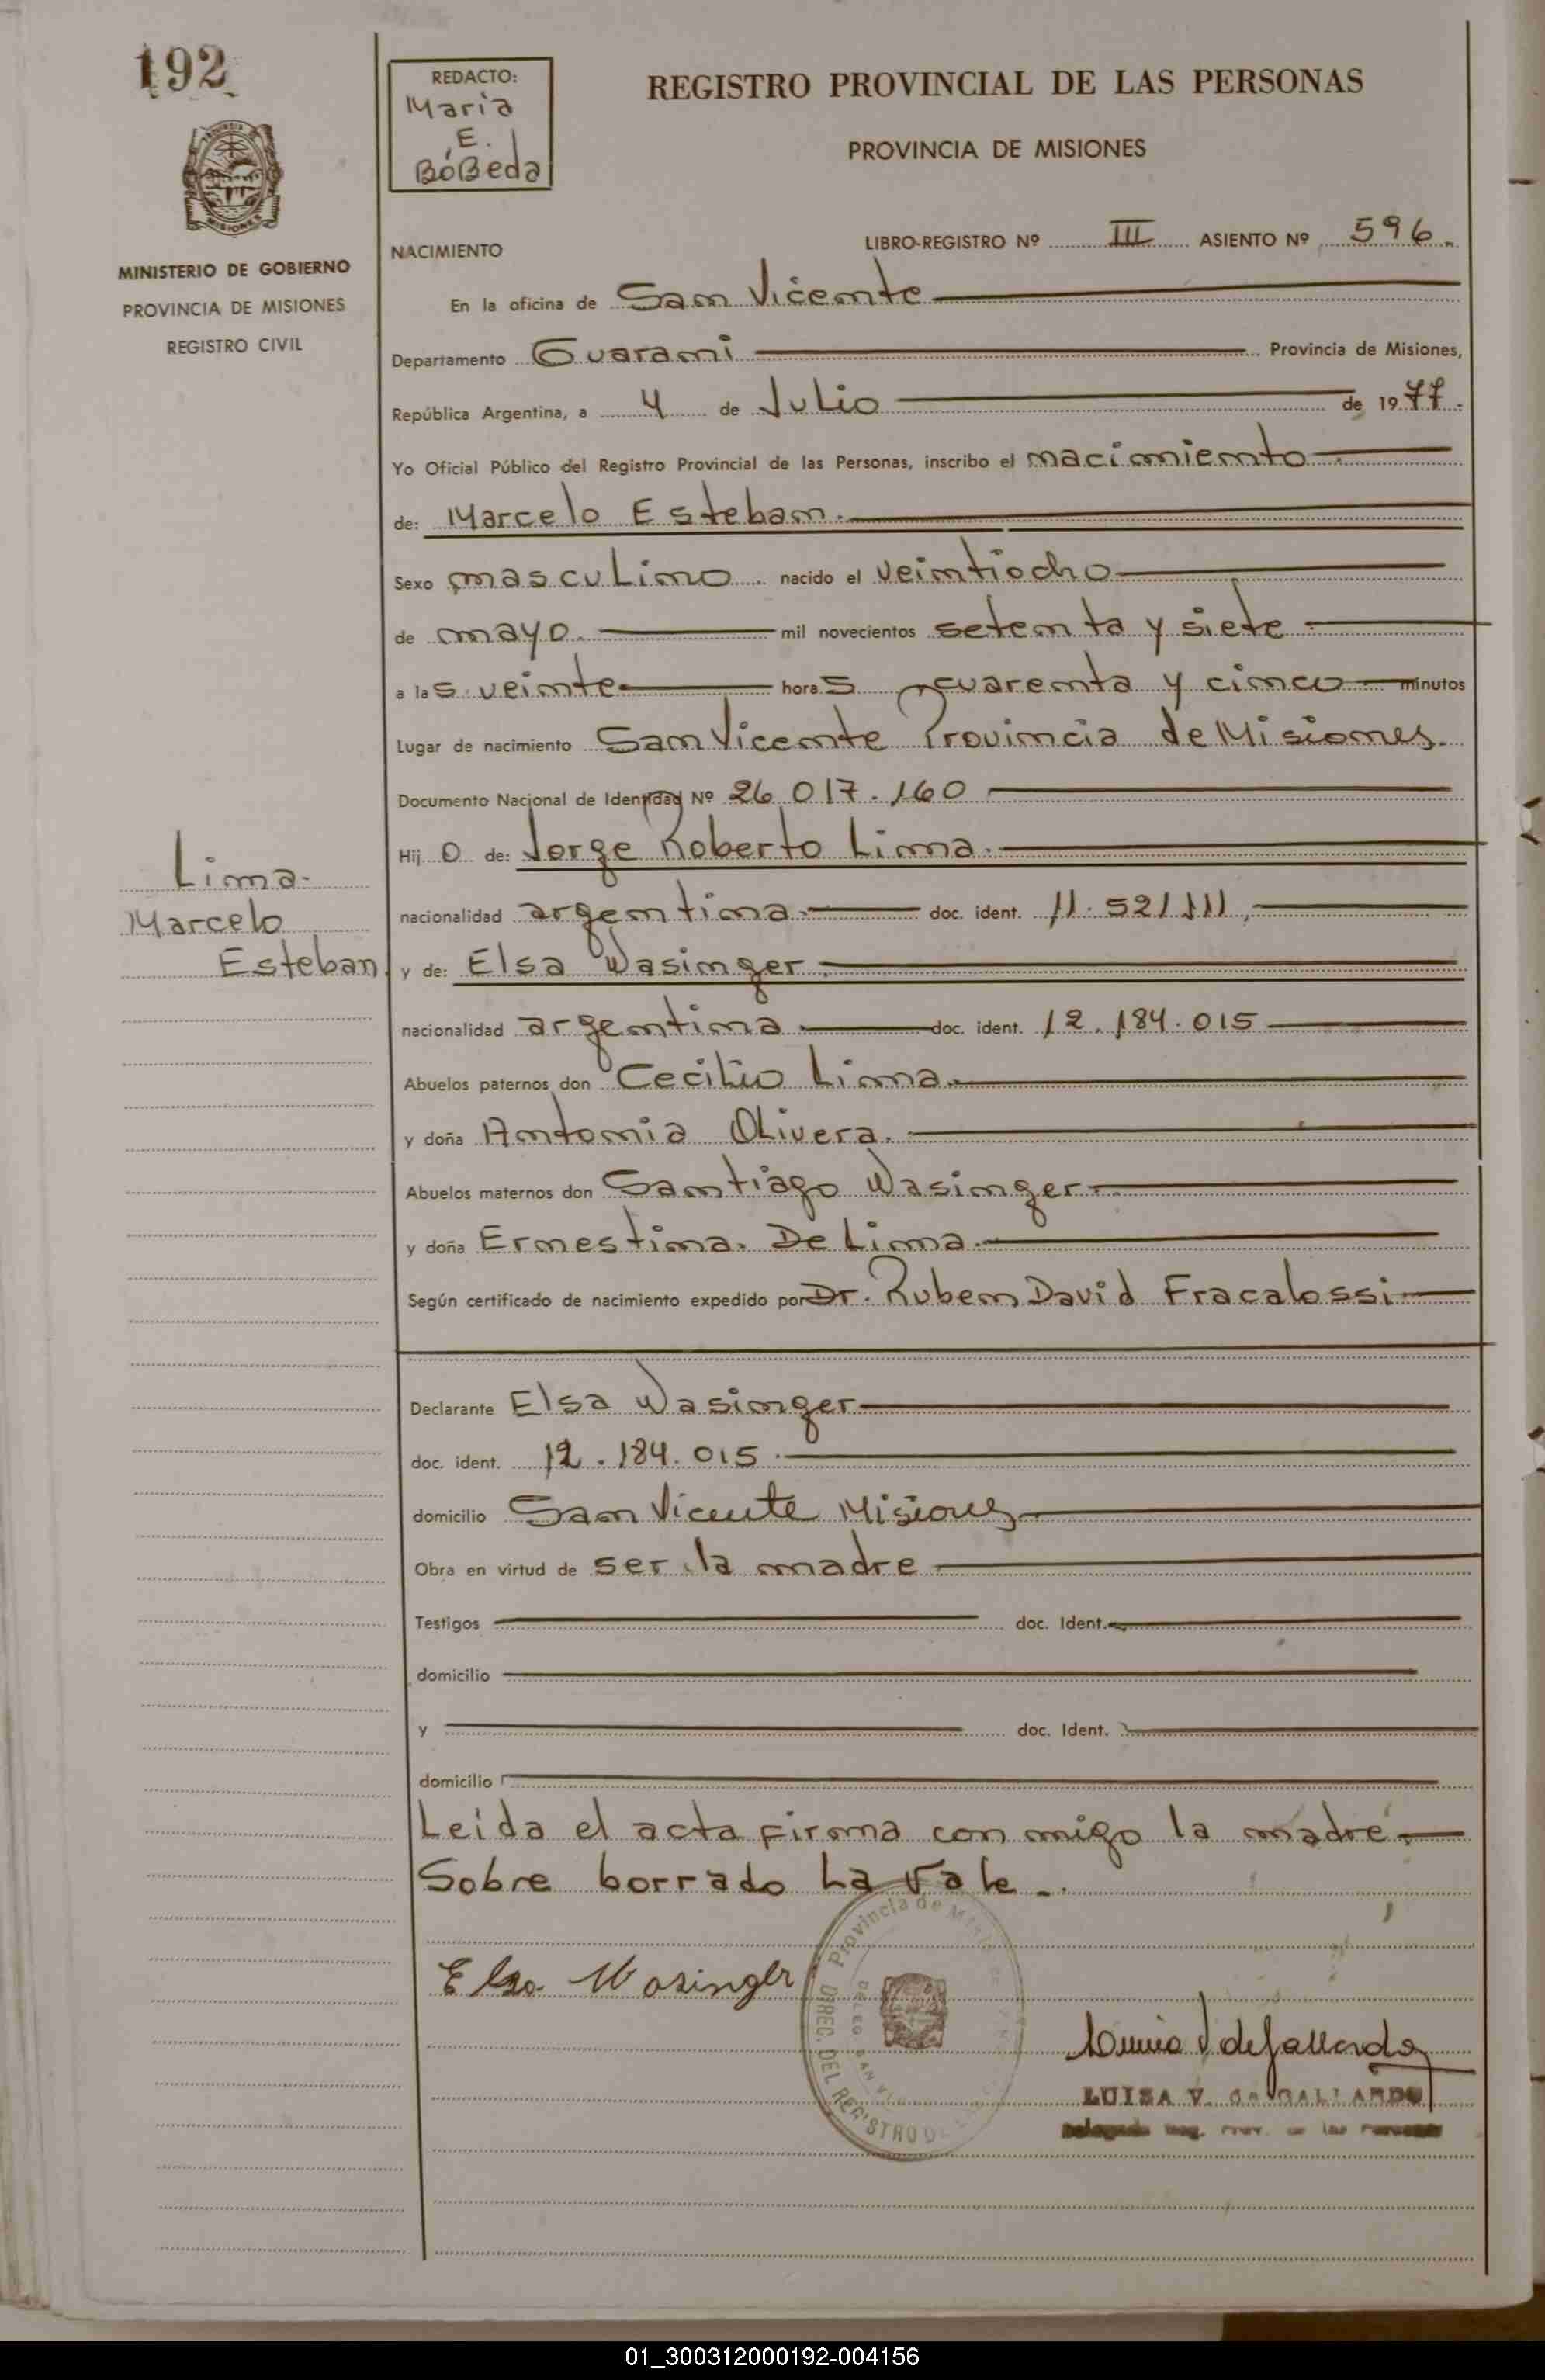 192
REDACTO:
Maria
E.
BóBeda
REGISTRO PROVINCIAL DE LAS PERSONAS
PROVINCIA DE MISIONES
MISIONES
MINISTERIO DE GOBIERNO
PROVINCIA DE MISIONES
REGISTRO CIVIL
NACIMIENTO
LIBRO-REGISTRO Nº III ASIENTO Nº 596.
En la oficina de San Vicente
Departamento Guarani Provincia de Misiones,
República Argentina, a 4 de Julio de 1977.
Yo Oficial Público del Registro Provincial de las Personas, inscribo el nacimiento
de: Marcelo Esteban.
Sexo masculino nacido el veintiocho
de mayo. mil novecientos setenta y siete
a las veinte horas cuarenta y cinco minutos
Lugar de nacimiento San Vicente Provincia de Misiones.
Documento Nacional de Identidad Nº 26 017.160
Hijo de: Jorge Roberto Lima.
Lima.
Marcelo
Esteban.
nacionalidad argentina. doc. ident. 11.521111.
y de: Elsa Wasinger.
nacionalidad argentina doc. ident. 12.184.015
Abuelos paternos don Cecilio Lima
y doña Antonia Olivera.
Abuelos maternos don Santiago Wasinger
y doña Ernestina. De Lima.
Según certificado de nacimiento expedido por Dr. Ruben David Fracalossi
Declarante Elsa Wasinger
doc. ident. 12.184.015
domicilio San Vicente Misiones
Obra en virtud de ser la madre
Testigos doc. Ident.
domicilio
y doc. Ident.
domicilio
Leida el acta firma con migo la madre.
Sobre borrado La Vale.
Elsa Wasinger
Provincia de
DIREC. DEL REGISTRO
DELEG. SAN
LUISA V. GALLARDO
01_300312000192-004156